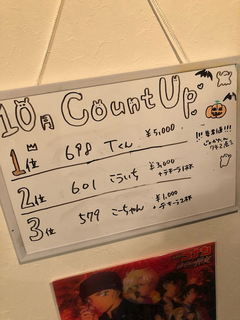 10月 Count Up
1位 698 Tくん ¥5,000
2位 601 こういち ¥3,000
+テキーラ3杯
3位 579 こーちゃん ¥1,000
+テキーラ2杯